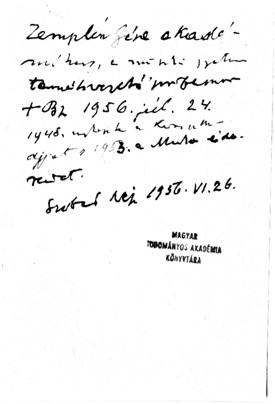 Zemplén Géza akadé-
mikus, a műszaki egyetem
tanszékvezető professzor
+ Bp 1956. júl. 24.
1948. a Kossuth-
díjat s 1953. a Munka érde-
rendet.
Szabad Nép 1956. VI. 26.
MAGYAR
TUDOMÁNYOS AKADÉMIA
KÖNYVTÁRA